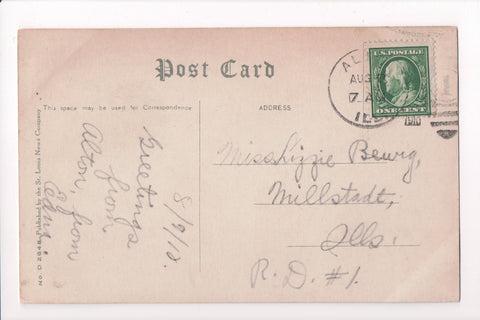 Post Card
This space may be used for Correspondence
ADDRESS
No. D 2648. Published by the St. Louis News Company
8/9/10.
Greetings
from
Alton, from
Edna.
AUG
7 A
ILL
1910
U.S. POSTAGE
ONE CENT
Miss Lizzie
Millstadt,
Ills.
R. D. #1.